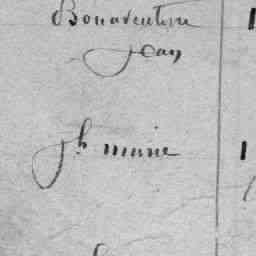 Bonaventure
Jean
Jh marie